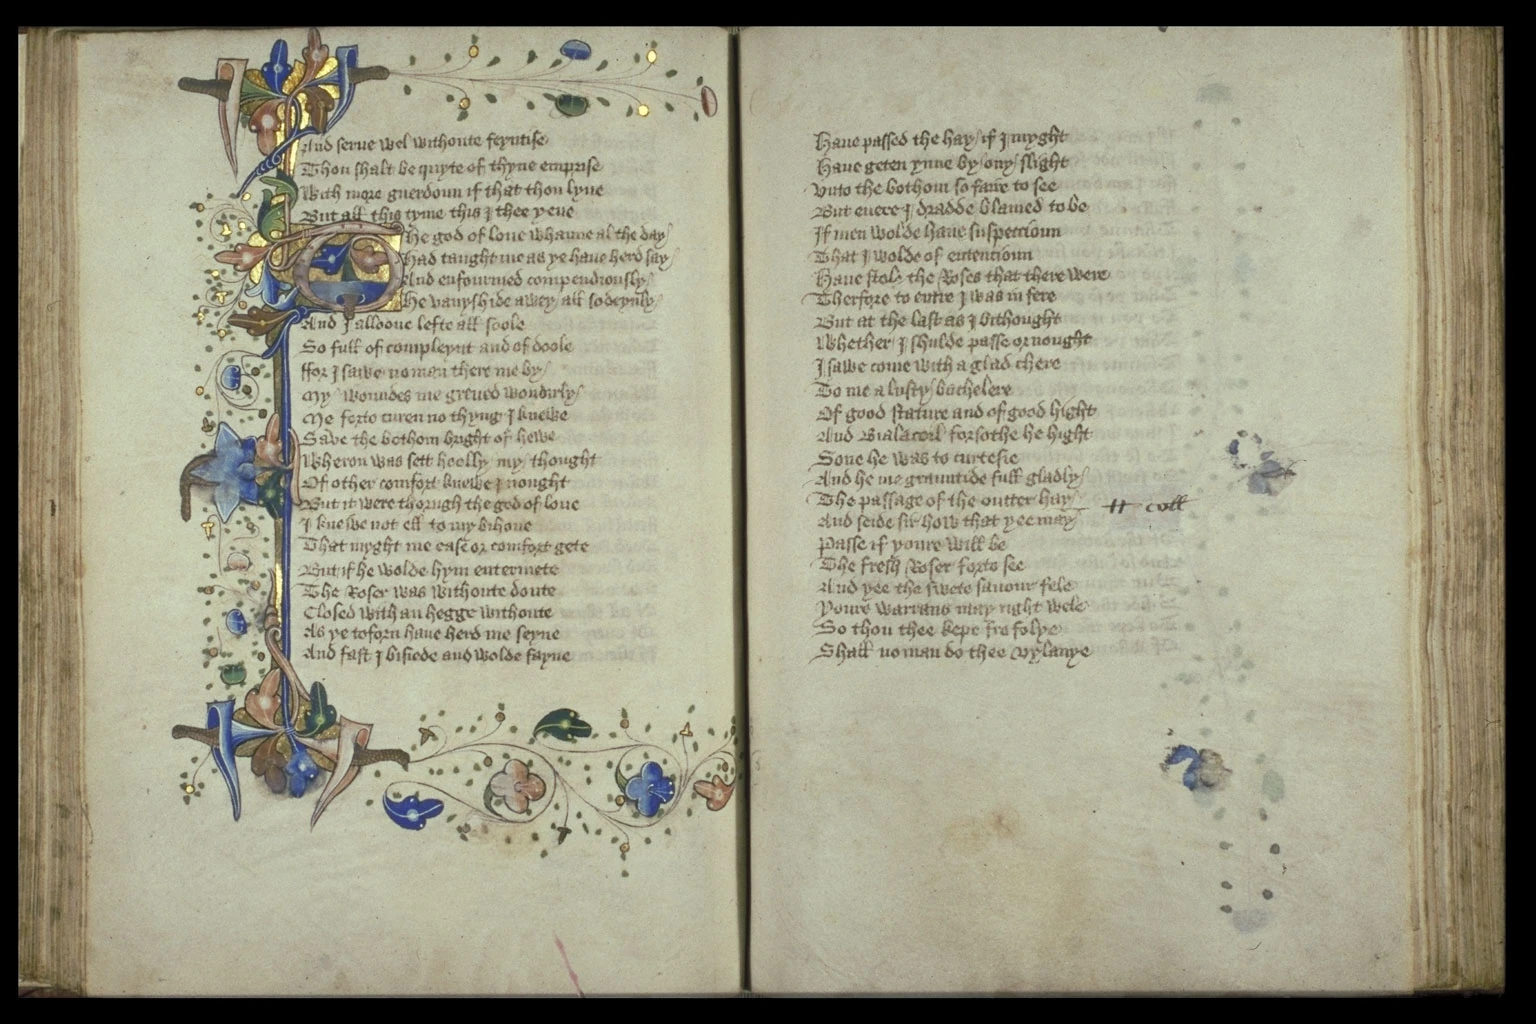 And serue wel withoute feyntise
Thou shalt be quyte of thyne emprise
With more guerdoun if that thou lyue
But all this tyme this I thee yeue
The god of loue whanne al the day
Had taught me as ye haue herd say
And enfourmed compendiously
He vanyshide awey all sodeynly
And I alloone lefte all soole
So full of compleynt and of doole
ffor I sawe no man there me by
My woundes me greued wondirly
Me forto curen no thyng I knewe
Save the bothom bright of hewe
Wheron was sett hoolly my thought
Of other comfort knewe I nought
But it were thorugh the god of loue
I knewe not ell to my bihoue
That myght me ease or comfort gete
But if he wolde hym entermete
The Roser was withoute doute
Closed with an hegge withoute
As ye toforn haue herd me seyne
And fast I bisiede and wolde fayne
Haue passed the hay if I myght
Haue geten ynne by ony slight
vnto the bothom so faire to see
But euere I dradde blamed to be
If men wolde haue suspeccioun
That I wolde of entencioun
Haue stole the Roses that there were
Therfore to entre I was in fere
But at the last as I bithought
Whether I shulde passe or nought
I sawe come with a glad chere
To me a lusty bachelere
Of good stature and of good hight
And Bialacoil forsothe he hight
Sone he was to curtesie
And he me grauntide full gladly
The passage of the outter hay
And seide sir how that yee may
Passe if youre will be
The fresh Roser forto see
And yee the swete sauour fele
Youre warrans may right wele
So thou thee kepe fro folye
Shall no man do thee vylanye